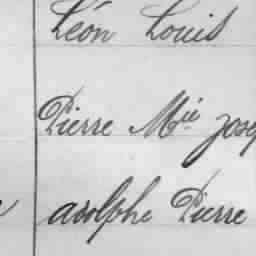 Léon Louis
Pierre Mie
adolphe Pierre